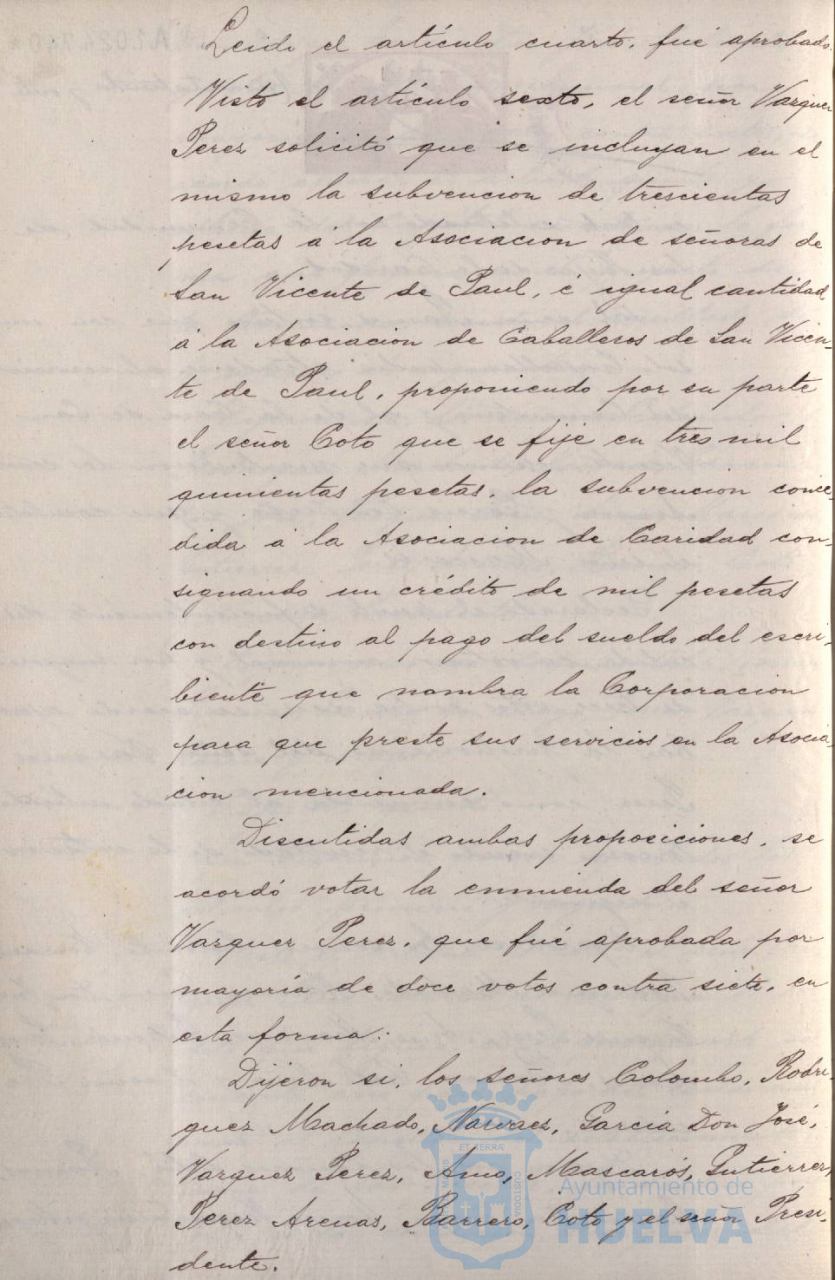 Leido el artículo cuarto, fué aprobado.
Visto el artículo sexto, el señor Vazquez
Perez solicitó que se incluyan en el
mismo la subvencion de trescientas
pesetas á la Asociacion de señoras de
San Vicente de Paul, é igual cantidad
á la Asociacion de Caballeros de San Vicen-
te de Paul, proponiendo por su parte
el señor Coto que se fije en tres mil
quinientas pesetas, la subvencion conce-
dida á la Asociacion de Caridad con-
signando un crédito de mil pesetas
con destino al pago del sueldo del escri-
biente que nombra la Corporacion
para que preste sus servicios en la Asocia-
cion mencionada.
Discutidas ambas proposiciones, se
acordó votar la enmienda del señor
Vazquez Perez, que fué aprobada por
mayoría de doce votos contra siete, en
esta forma:
Dijeron si, los señores Colombo, Rodri-
guez Machado, Narvaez, García Don José,
Vazquez Perez, Amo, Mascarós, Gutierrez,
Perez Arenas, Barrero, Coto y el señor Presi-
dente.
Ayuntamiento de
HUELVA